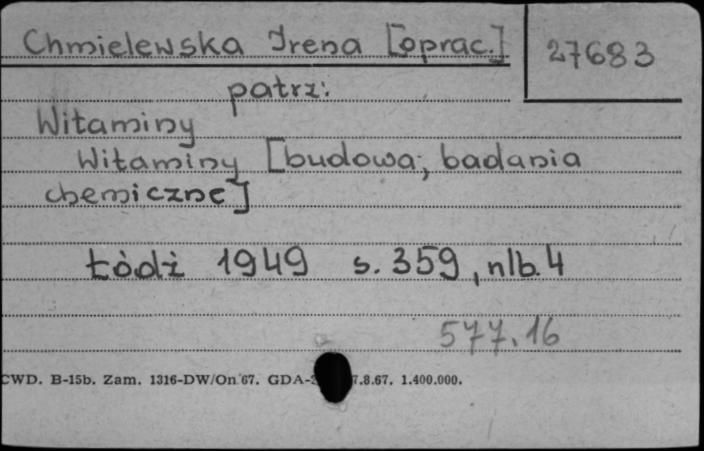 Chmielewska Irena [oprac.]
27683
patrz:
Witaminy
Witaminy [budowa, badania
chemiczne]
Łódź 1949 s. 359, nlb. 4
577.16
CWD. B-15b. Zam. 1316-DW/On 67. GDA- 7.8.67. 1.400.000.